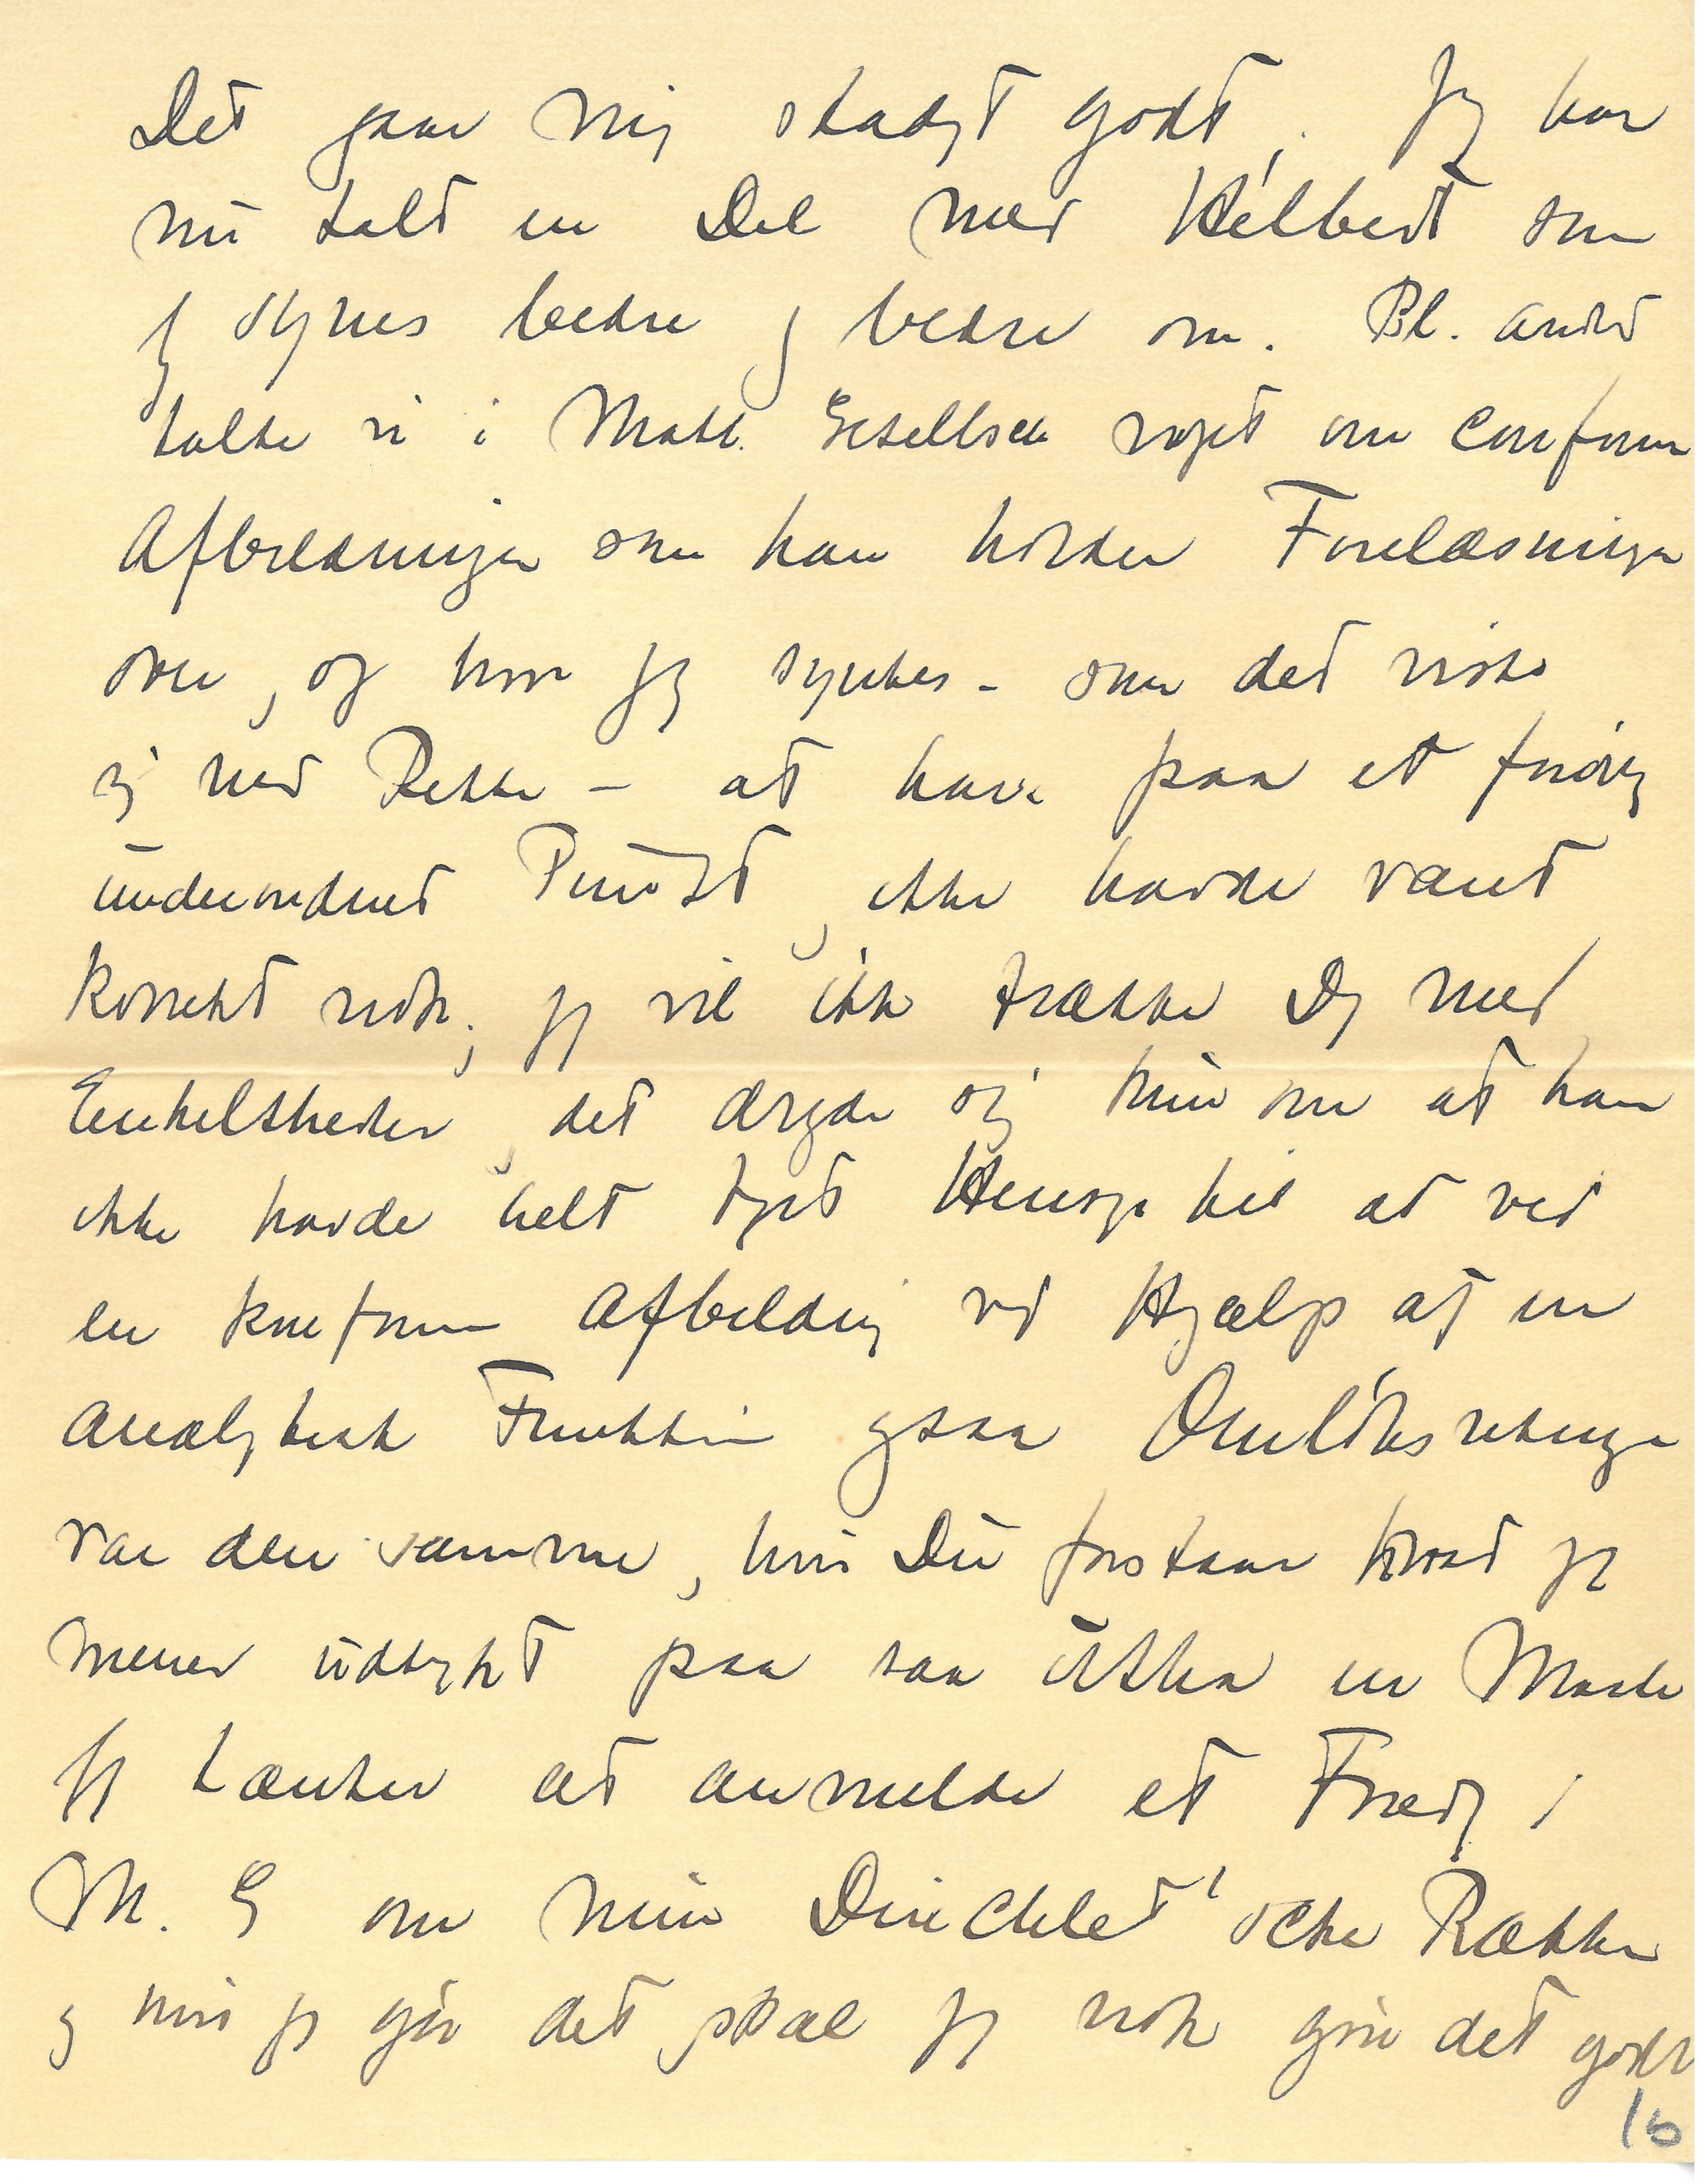 Det gaar mig stadigt godt. Jeg har
nu talt en Del med Hilbert som
jeg synes bedre og bedre om. Bl. andet
talte vi i Math. Gesellsch noget om Conforme
Afbildninger som han holder Forelæsninger
over, og hvor jeg syntes - som det viste
sig med Rette - at han paa et forøvrig
underordnet Punkt, ikke havde været
korrekt nok; jeg vil ikke trætte Dig med
Enkeltheder, det drejede sig kun om at han
ikke havde helt taget Hensyn til at ved
en konform Afbildning ved Hjælp af en
analytisk Funktion ogsaa Omløbsretningen
var den samme, hvis Du forstaar hvad jeg
mener udtrykt paa saa en Maade
Jeg tænker at anmelde et Foredrag i
M. G om mine Dirichlet'ske Rækker
og hvis jeg gør det skal jeg nok gøre det godt
16